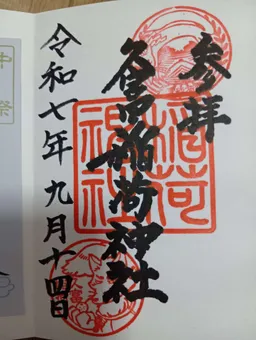 参拝
久富稲荷神社
令和七年九月十四日
稲荷
神社
中
祭